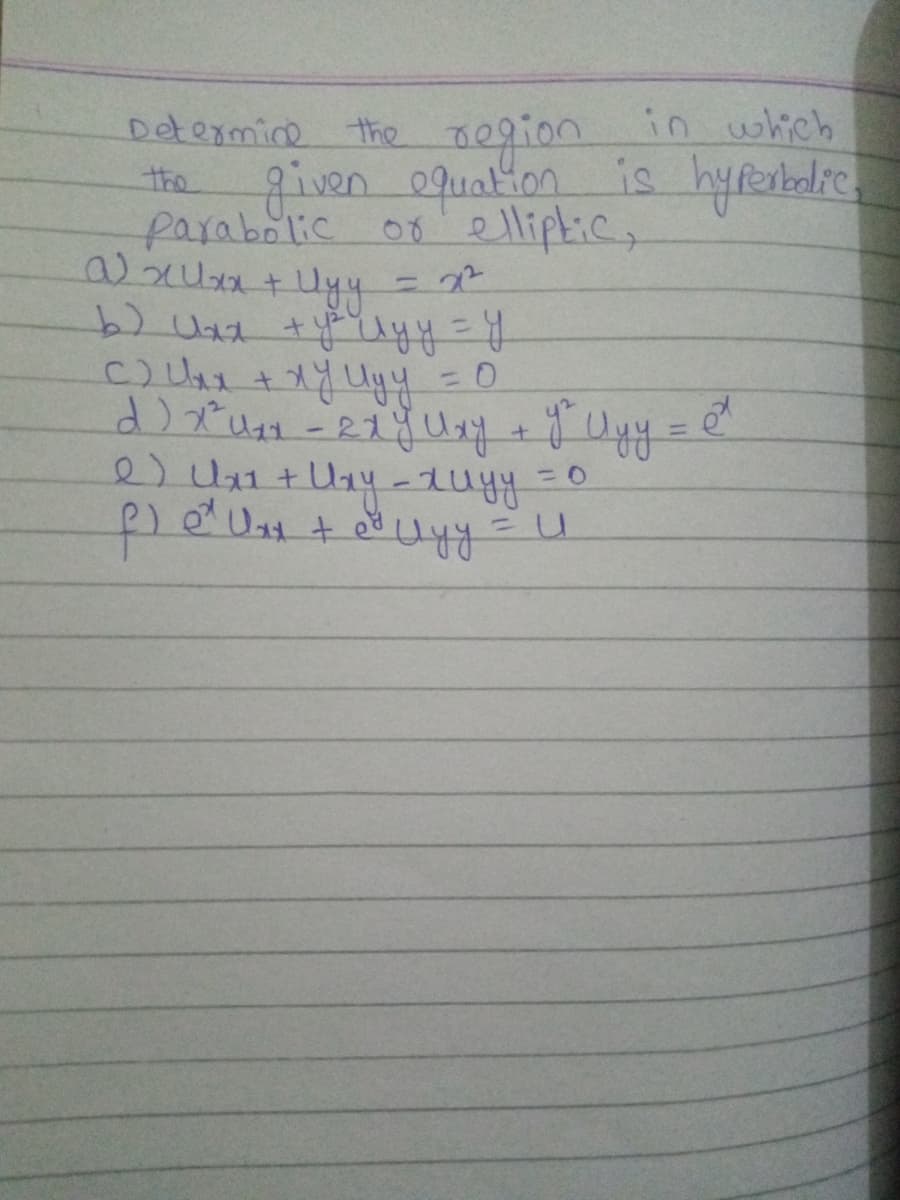 Determine the region in which
the given equation is hyperbolic,
parabolic or elliptic,
a) xUxx + Uyy = x²
b) Uxx + y² Uyy = y
c) Uxx + xy Uyy = 0
d) x² Uxx - 2xy Uxy + y² Uyy = eˣ
e) Uxx + Uxy - xUyy = 0
f) eˣ Uxx + eʸ Uyy = u